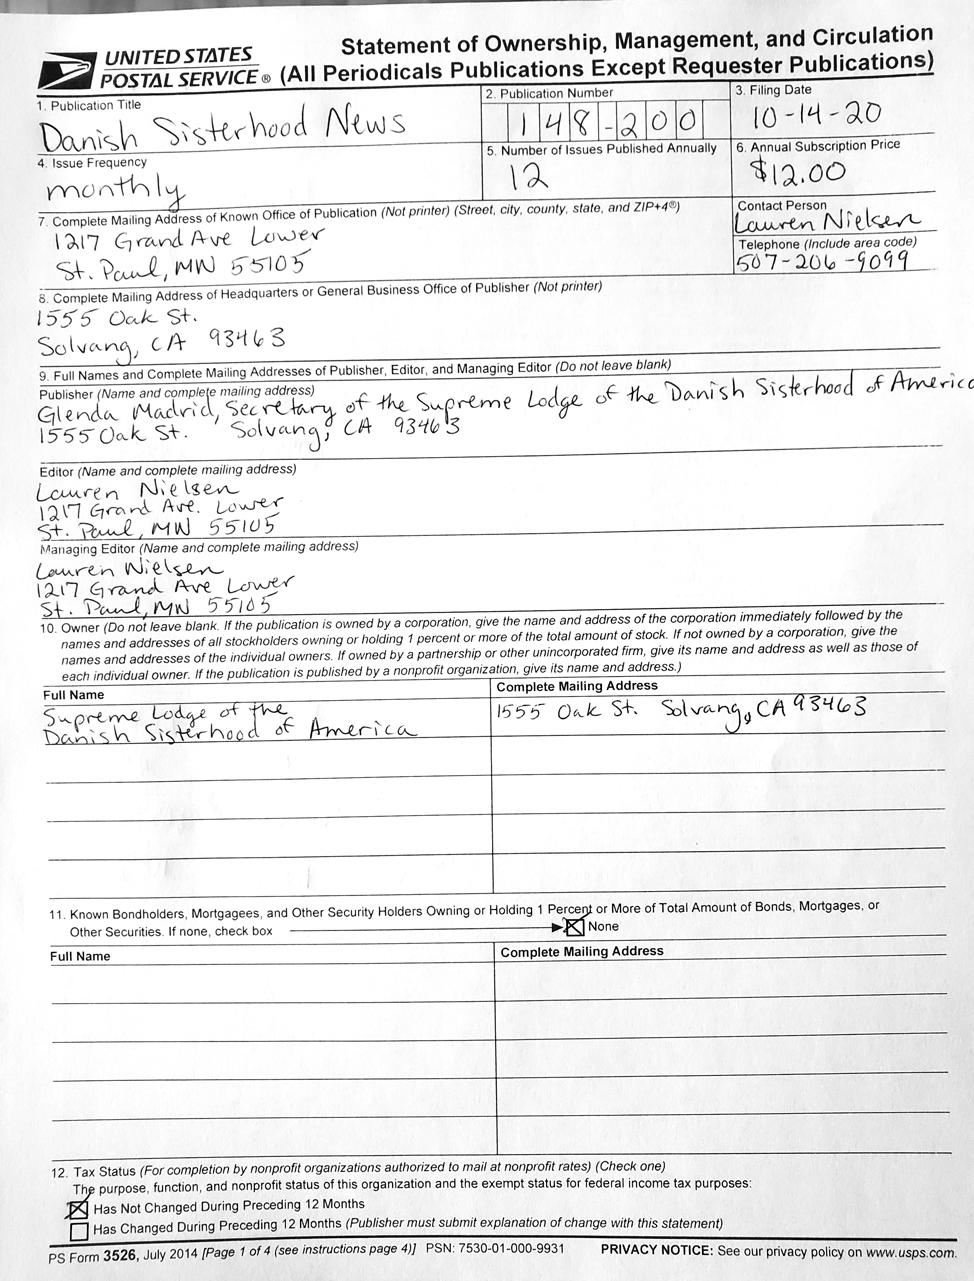 UNITED STATES
POSTAL SERVICE ®
Statement of Ownership, Management, and Circulation
(All Periodicals Publications Except Requester Publications)
1. Publication Title
Danish Sisterhood News
2. Publication Number
148-200
3. Filing Date
10-14-20
4. Issue Frequency
monthly
5. Number of Issues Published Annually
12
6. Annual Subscription Price
$12.00
7. Complete Mailing Address of Known Office of Publication (Not printer) (Street, city, county, state, and ZIP+4®)
1217 Grand Ave Lower
St. Paul, MN 55105
Contact Person
Lauren Nielsen
Telephone (Include area code)
507-206-9099
8. Complete Mailing Address of Headquarters or General Business Office of Publisher (Not printer)
1555 Oak St.
Solvang, CA 93463
9. Full Names and Complete Mailing Addresses of Publisher, Editor, and Managing Editor (Do not leave blank)
Publisher (Name and complete mailing address)
Glenda Madrid, Secretary of the Supreme Lodge of the Danish Sisterhood of America
1555 Oak St. Solvang, CA 93463
Editor (Name and complete mailing address)
Lauren Nielsen
1217 Grand Ave. Lower
St. Paul, MN 55105
Managing Editor (Name and complete mailing address)
Lauren Nielsen
1217 Grand Ave Lower
St. Paul, MN 55105
10. Owner (Do not leave blank. If the publication is owned by a corporation, give the name and address of the corporation immediately followed by the
names and addresses of all stockholders owning or holding 1 percent or more of the total amount of stock. If not owned by a corporation, give the
names and addresses of the individual owners. If owned by a partnership or other unincorporated firm, give its name and address as well as those of
each individual owner. If the publication is published by a nonprofit organization, give its name and address.)
Full Name
Complete Mailing Address
Supreme Lodge of the
Danish Sisterhood of America
1555 Oak St. Solvang, CA 93463
11. Known Bondholders, Mortgagees, and Other Security Holders Owning or Holding 1 Percent or More of Total Amount of Bonds, Mortgages, or
Other Securities. If none, check box
None
Full Name
Complete Mailing Address
12. Tax Status (For completion by nonprofit organizations authorized to mail at nonprofit rates) (Check one)
The purpose, function, and nonprofit status of this organization and the exempt status for federal income tax purposes:
Has Not Changed During Preceding 12 Months
Has Changed During Preceding 12 Months (Publisher must submit explanation of change with this statement)
PS Form 3526, July 2014 [Page 1 of 4 (see instructions page 4)] PSN: 7530-01-000-9931 PRIVACY NOTICE: See our privacy policy on www.usps.com.